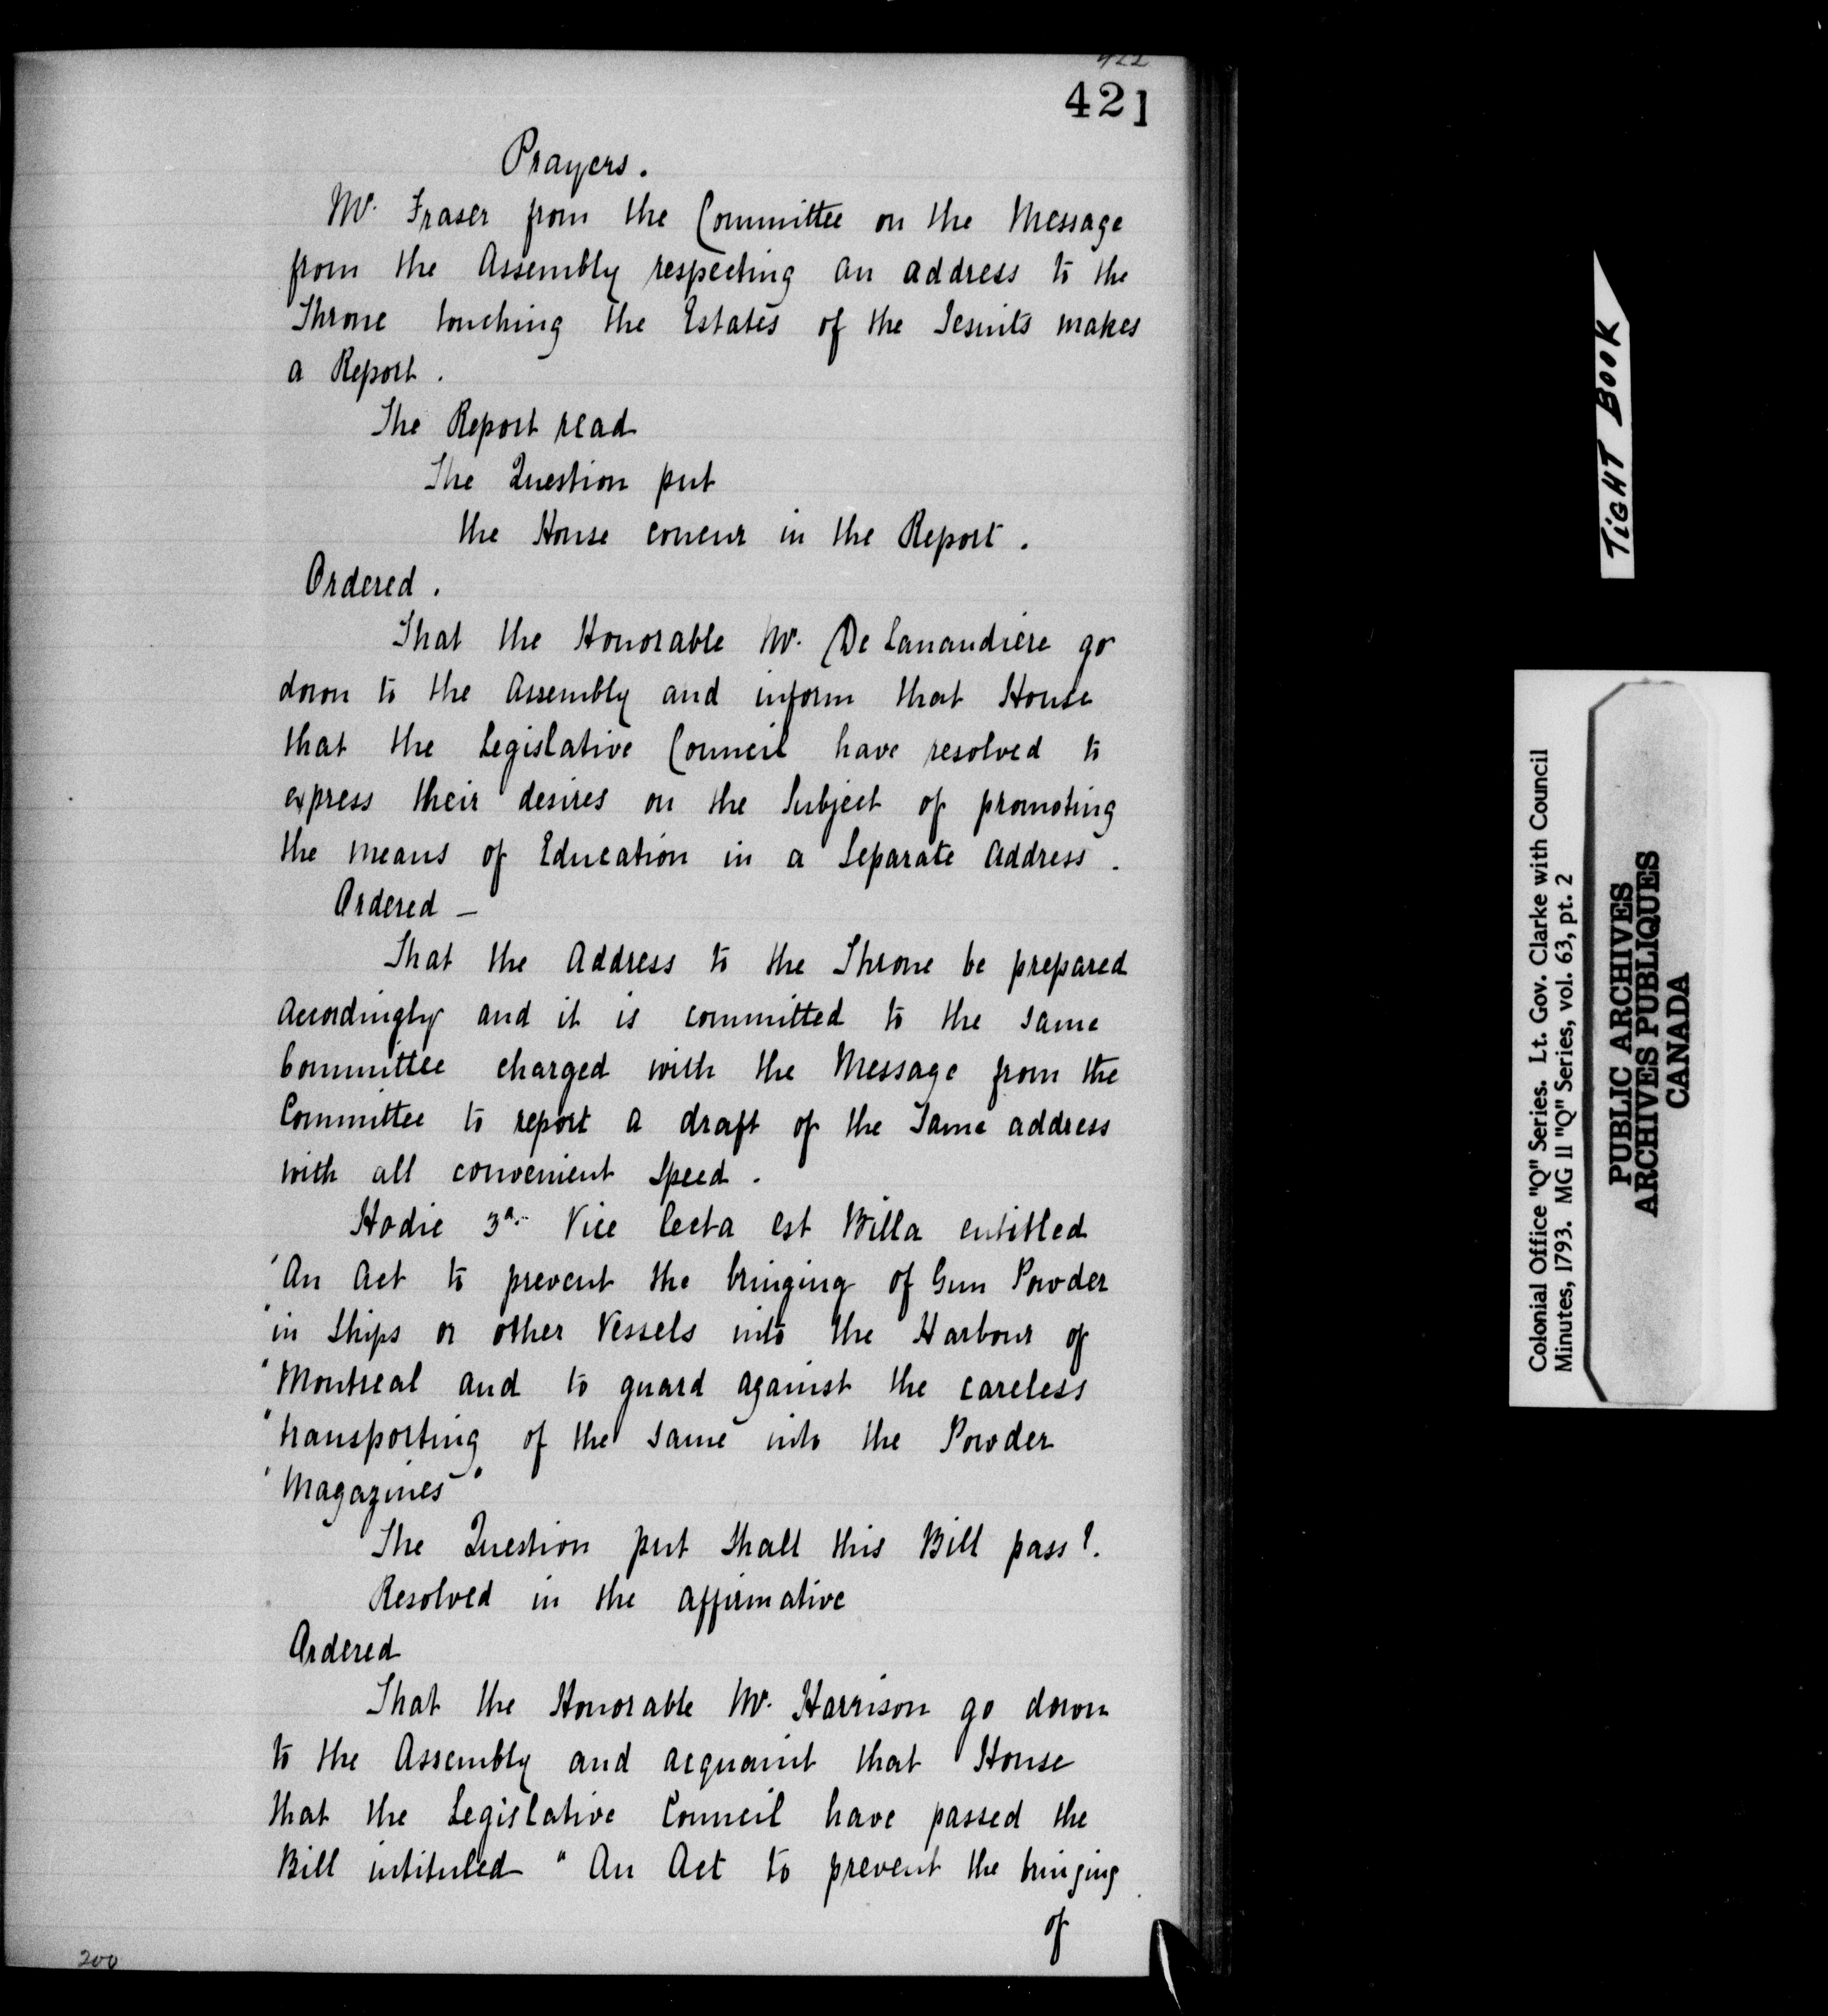 422
421
Prayers.
Mr. Fraser from the Committee on the Message
from the Assembly respecting an address to the
Throne touching the Estates of the Jesuits makes
a Report.
The Report read
The Question put
the House concur in the Report.
Ordered.
That the Honorable Mr. De Lanaudiere go
down to the Assembly and inform that House
that the Legislative Council have resolved to
express their desires on the Subject of promoting
the means of Education in a Separate Address.
Ordered —
That the Address to the Throne be prepared
accordingly and it is committed to the same
Committee charged with the Message from the
Committee to report a draft of the same address
with all convenient Speed.
Hodie 3a. Vice lecta est Billa entitled
"An Act to prevent the bringing of Gun Powder
"in Ships or other Vessels into the Harbour of
"Montreal and to guard against the careless
"transporting of the same into the Powder
"Magazines"
The Question put Shall this Bill pass?.
Resolved in the affirmative
Ordered
That the Honorable Mr. Harrison go down
to the Assembly and acquaint that House
that the Legislative Council have passed the
Bill intituled "An Act to prevent the bringing
of
200
TIGHT BOOK
Colonial Office "Q" Series. Lt. Gov. Clarke with Council
Minutes, 1793. MG 11 "Q" Series, vol. 63, pt. 2
PUBLIC ARCHIVES
ARCHIVES PUBLIQUES
CANADA